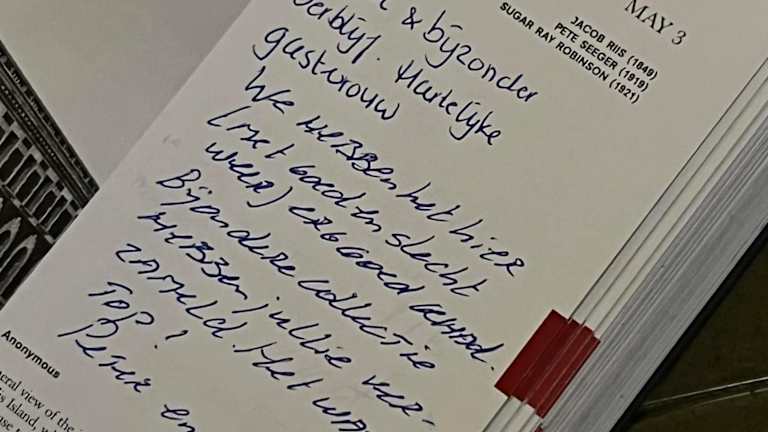 MAY 3
JACOB RIIS (1849)
PETE SEEGER (1919)
SUGAR RAY ROBINSON (1921)
& bijzonder
verblijf. Hartelijke
gastvrouw
We HEBBEN het hier
(met GOED en slecht
weer) erg GOED GEHAD.
Bijzondere collectie
HEBBEN jullie ver-
zameld. Het wa
TOP!
en
Anonymous
eral view of the
is Island, w